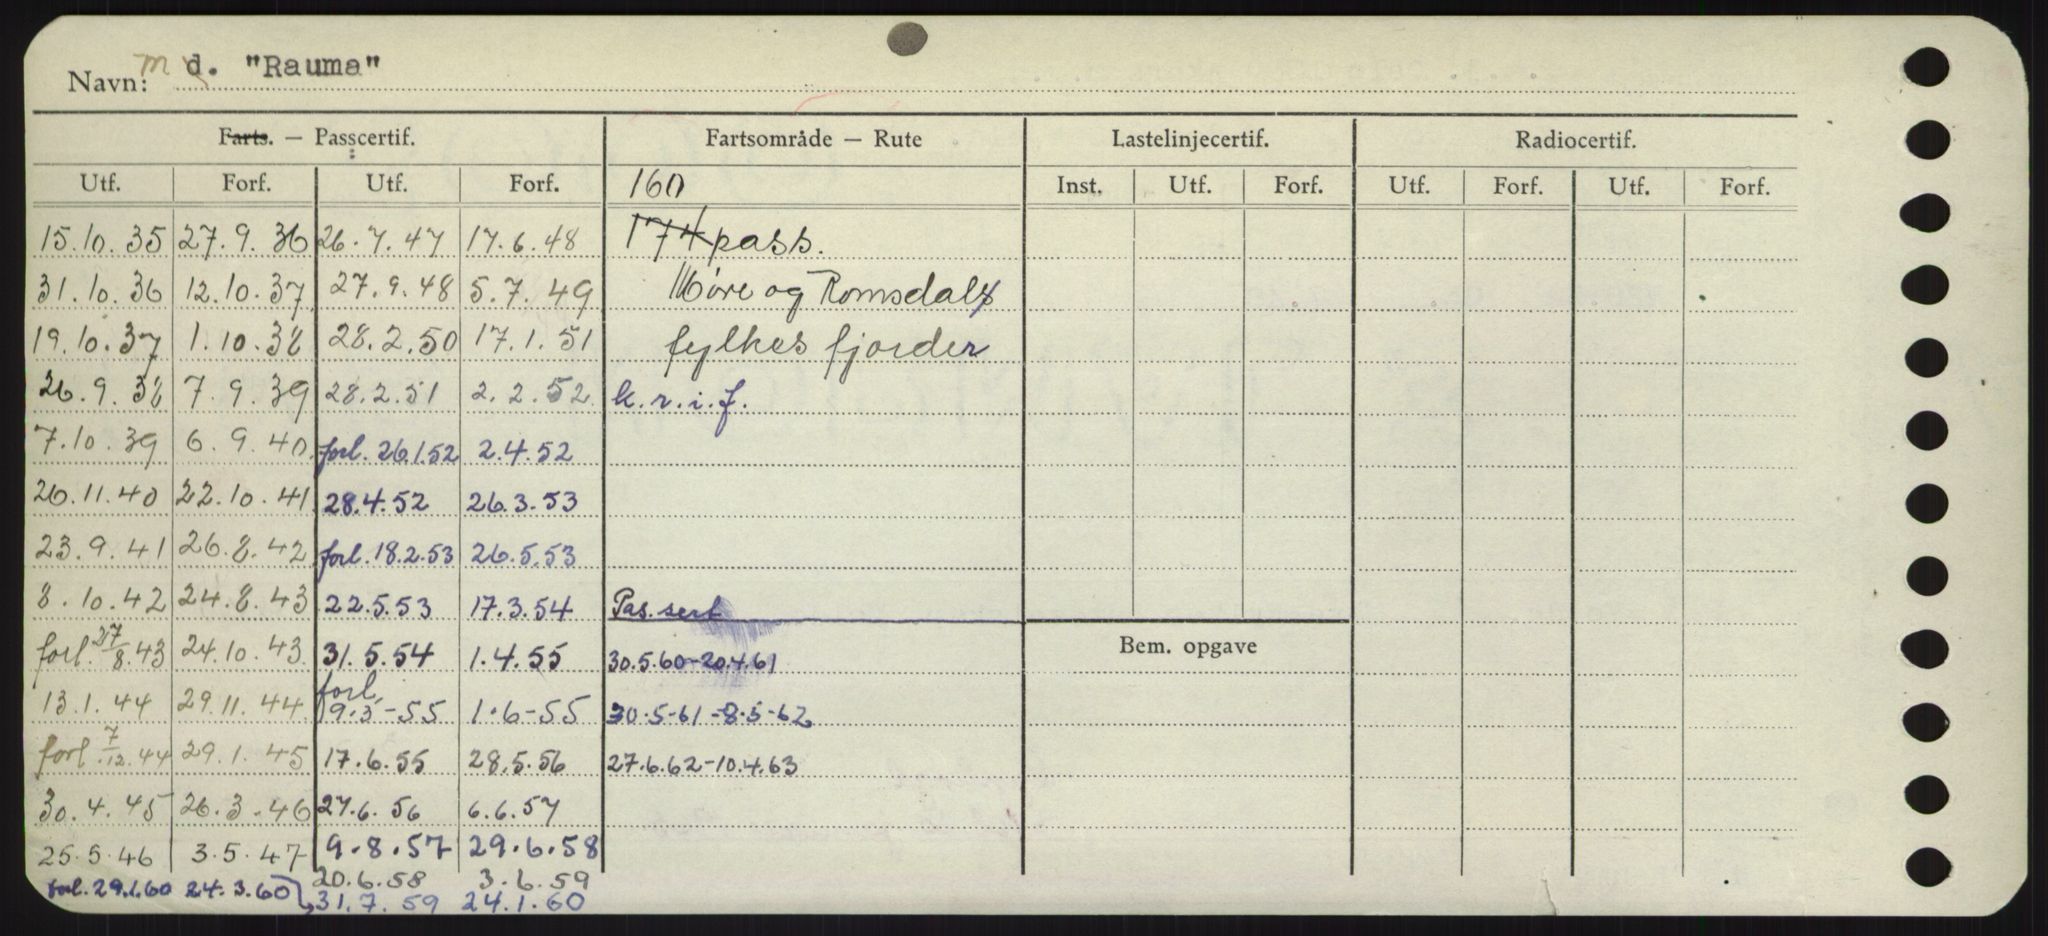 Navn: m d. "Rauma"
Farts. — Passcertif. Fartsområde — Rute Lastelinjecertif. Radiocertif.
Utf. Forf. Utf. Forf. 160 Inst. Utf. Forf. Utf. Forf. Utf. Forf.
15.10.35 27.9.36 26.7.47 17.6.48 174 pass.
31.10.36 12.10.37 27.9.48 5.7.49 Møre og Romsdals
19.10.37 1.10.38 28.2.50 17.1.51 fylkes fjorder
26.9.38 7.9.39 28.2.51 2.2.52 k.r.i.f.
7.10.39 6.9.40 forl. 26.1.52 2.4.52
26.11.40 22.10.41 28.4.52 26.3.53
23.9.41 26.8.42 forl. 18.2.53 26.5.53
8.10.42 24.8.43 22.5.53 17.3.54 Pas. sert
forl. 27/8.43 24.10.43 31.5.54 1.4.55 30.5.60-20.4.61 Bem. opgave
13.1.44 29.11.44 forl 9.3-55 1.6-55 30.5-61-8.5-62
forl 7/12.44 29.1.45 17.6.55 28.5.56 27.6.62-10.4.63
30.4.45 26.3.46 27.6.56 6.6.57
25.5.46 3.5.47 9.8.57 29.6.58
20.6.58 3.6.59
forl. 29.1.60 24.3.60 31.7.59 24.1.60